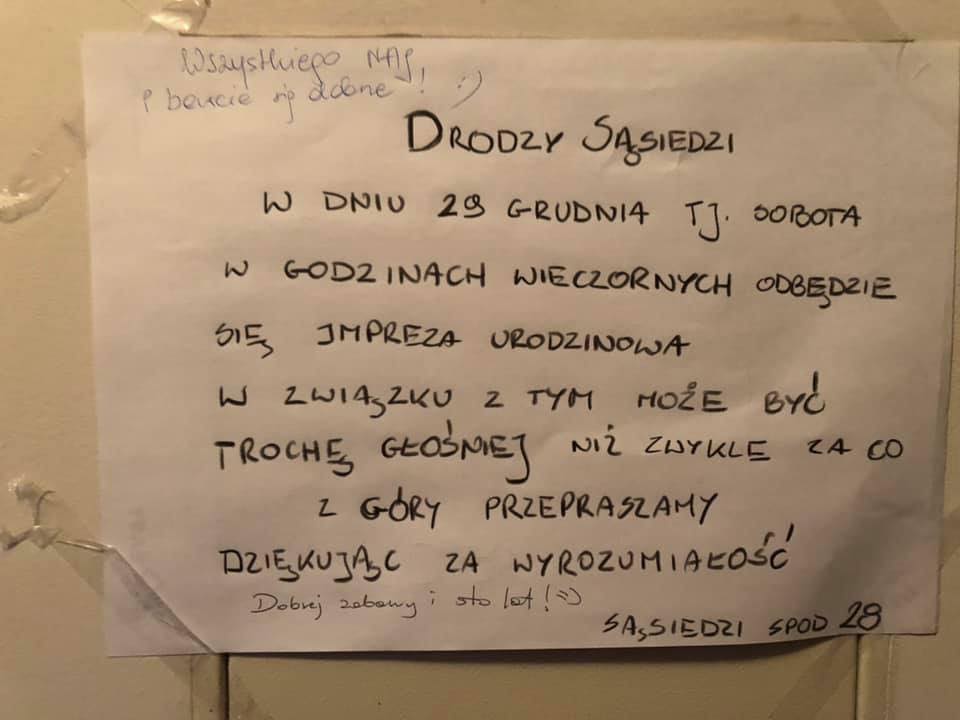 Wszystkiego NAJ,
i bawcie się dobrze! :)
DRODZY SĄSIEDZI
W DNIU 29 GRUDNIA TJ. SOBOTA
W GODZINACH WIECZORNYCH ODBĘDZIE
SIĘ IMPREZA URODZINOWA
W ZWIĄZKU Z TYM MOŻE BYĆ
TROCHĘ GŁOŚNIEJ NIŻ ZWYKLE ZA CO
Z GÓRY PRZEPRASZAMY
DZIĘKUJĄC ZA WYROZUMIAŁOŚĆ
Dobrej zabawy i sto lat! =)
SĄSIEDZI SPOD 28